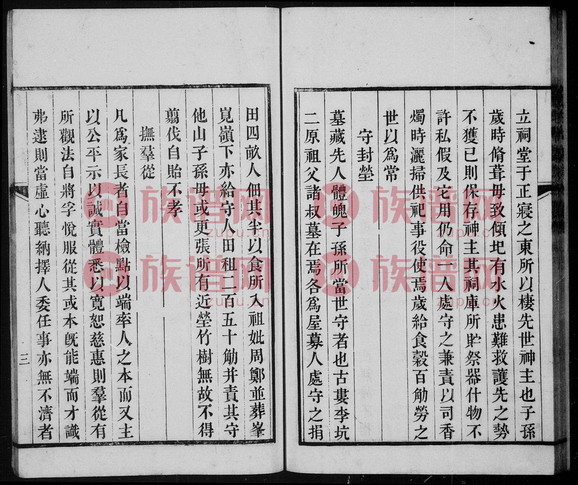 立祠堂于正寢之東所以棲先世神主也子孫
歲時脩葺毋致傾圯有水火患難救護先之勢
不獲已則保存神主其祠庫所貯祭器什物不
許私假及它用仍命一人處守之兼責以司香
燭時灑掃供祀事役使焉歲給食穀百觔勞之
世以爲常
守封塋
墓藏先人體魄子孫所當世守者也古婁李坑
二原祖父諸叔墓在焉各爲屋募人處守之捐
田四畝人佃其半以食所入祖妣周鄭並葬峯
嶺下亦給守人田租二百五十觔并責其守
他山子孫毋或更張所有近塋竹樹無故不得
翦伐自貽不孝
撫羣從
凡爲家長者自當檢點以端率人之本而又主
以公平示以誠實體悉以寬恕慈惠則羣從有
所觀法自將孚悅服從其或本旣能端而才識
弗逮則當虛心聽納擇人委任事亦無不濟者
三
族谱网
zupu.cn
族谱网
zupu.cn
族谱网
zupu.cn
族谱网
zupu.cn